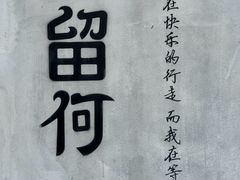 留何
在快乐的行走 而我在等